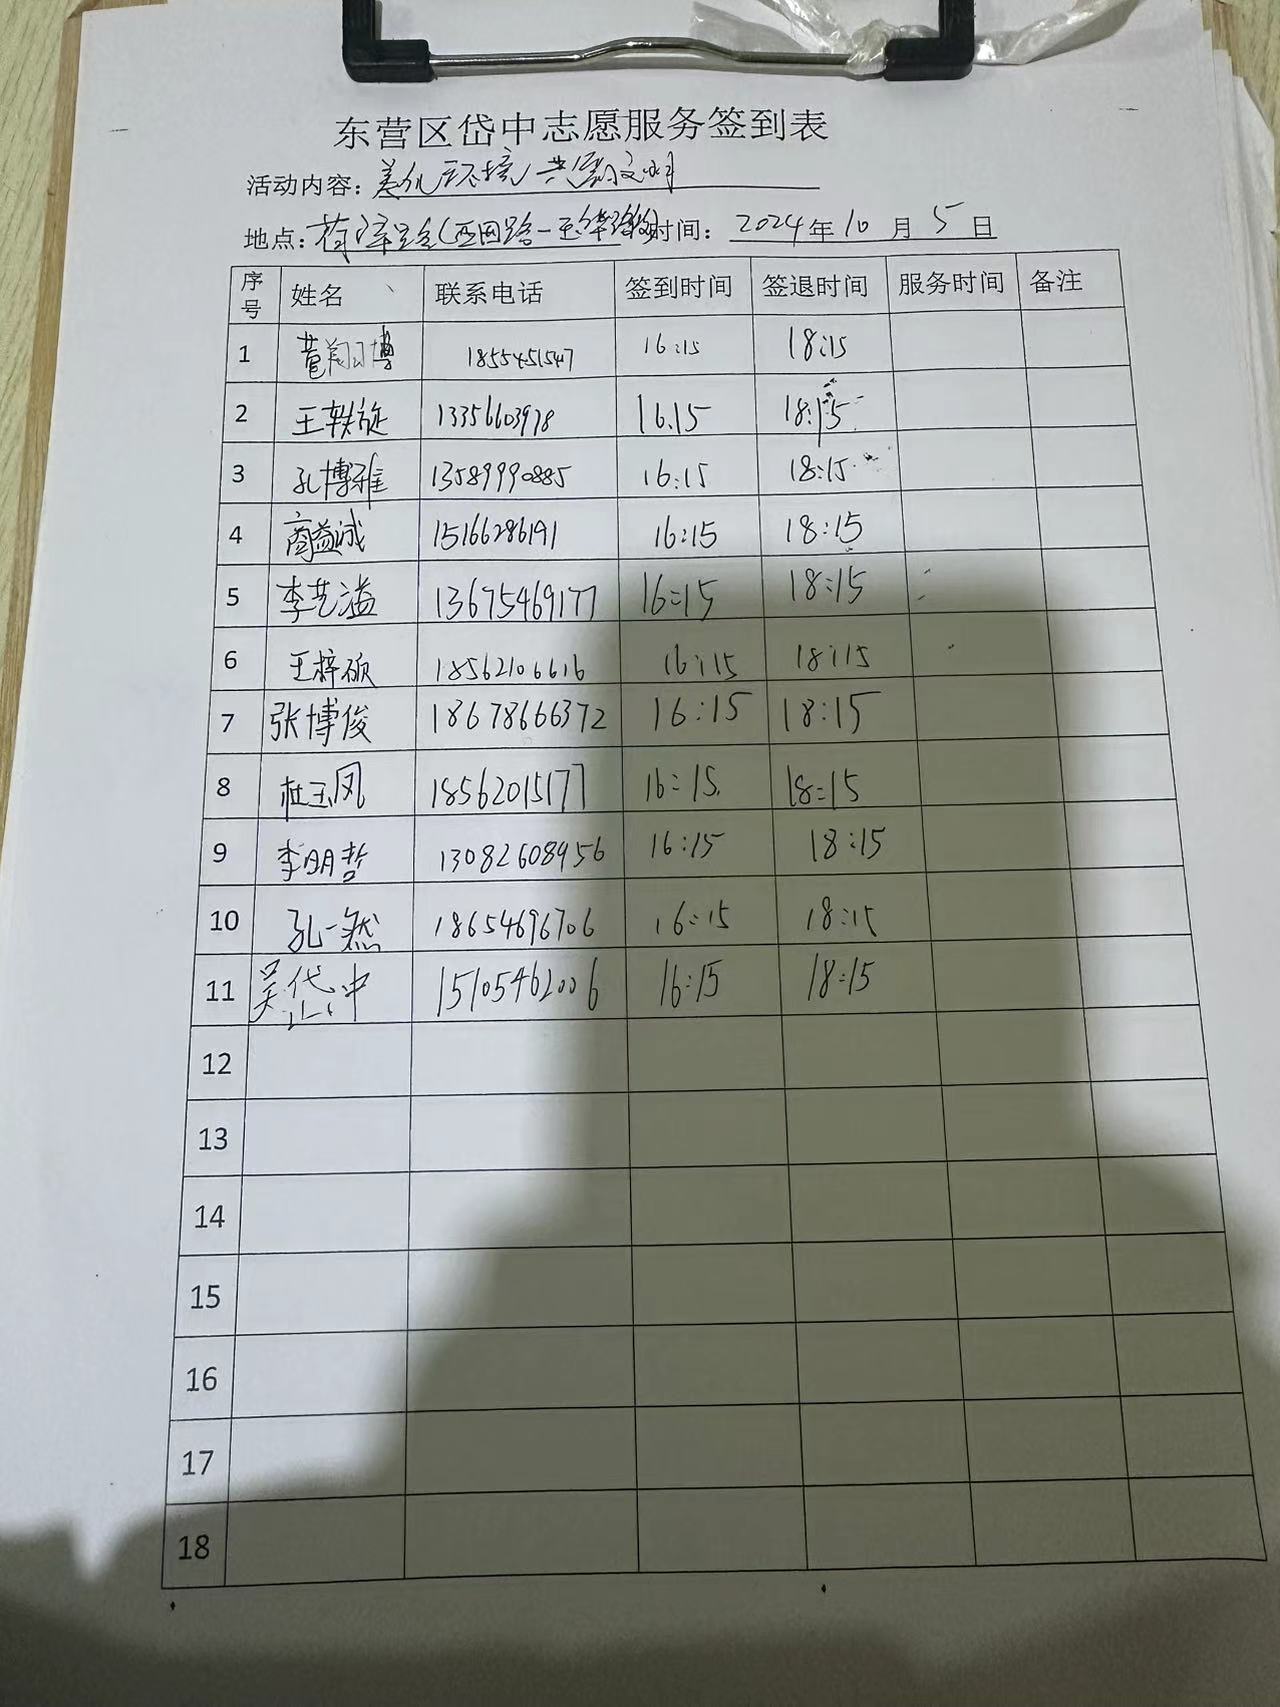 东营区岱中志愿服务签到表
活动内容：美化环境 共创文明
地点：菏泽路(西四路一至 时间：2024年10月5日
序号 姓名 联系电话 签到时间 签退时间 服务时间 备注
1 博 1855451547 16:15 18:15
2 王轶旋 13356603978 16.15 18:15
3 孔博雅 13589990885 16:15 18:15
4 商益诚 15166286191 16:15 18:15
5 李艺溢 13675469177 16:15 18:15
6 王梓硕 18562106616 16:15 18:15
7 张博俊 18678666372 16:15 18:15
8 杜玉凤 18562015177 16:15 18:15
9 李明哲 13082608956 16:15 18:15
10 孔一然 18654696706 16:15 18:15
11 吴代中 15105462006 16:15 18:15
12
13
14
15
16
17
18